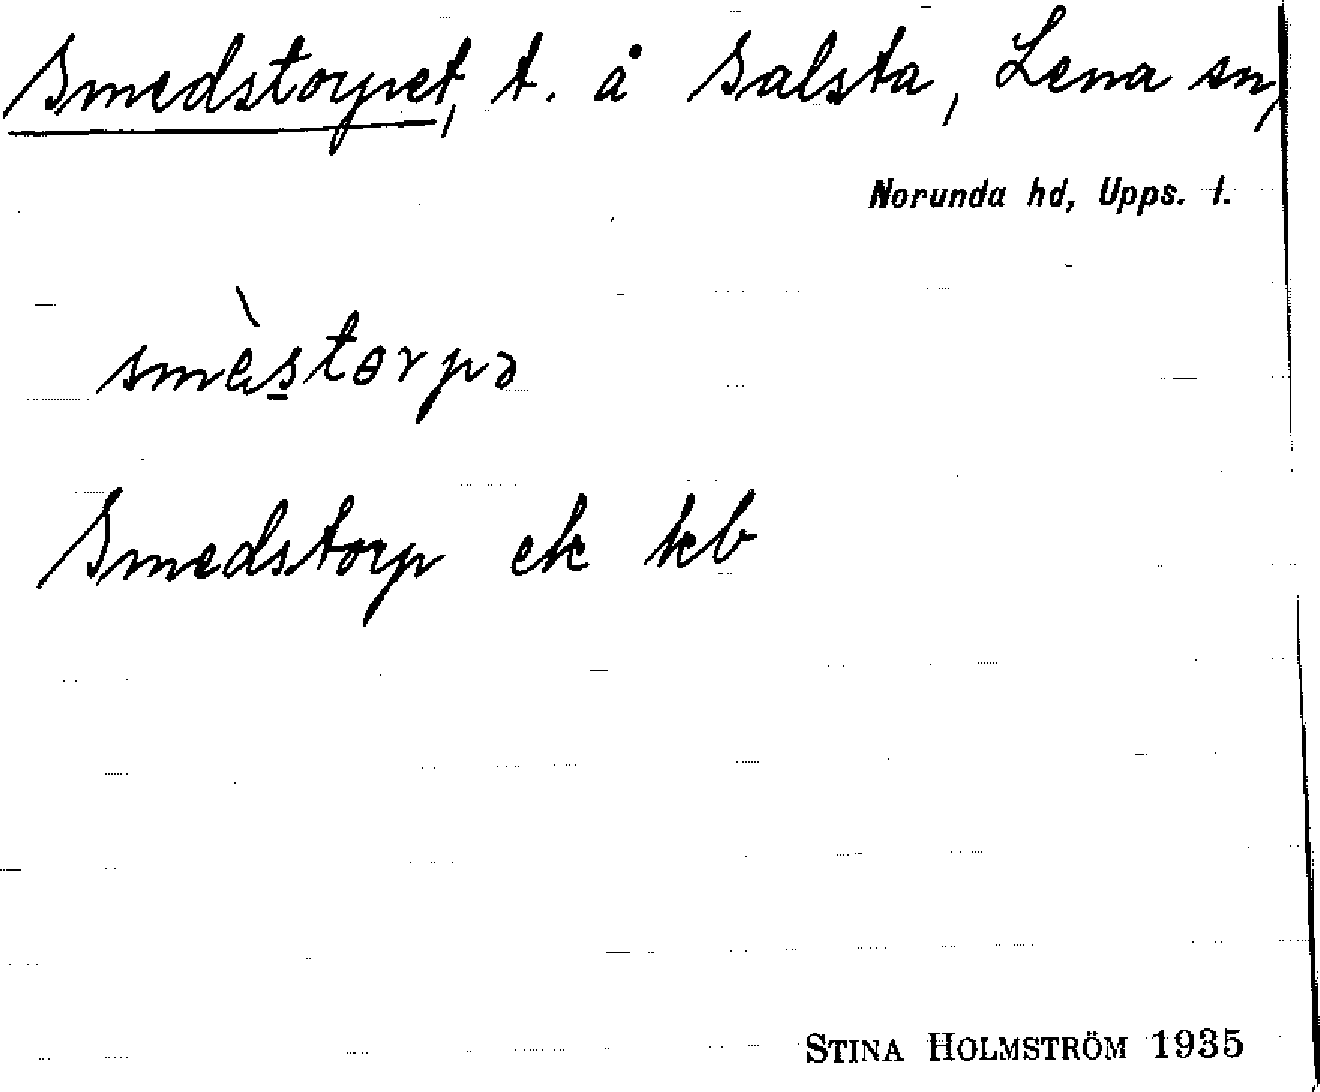 Smedstorpet, t. å Salsta, Lena sn,
Norunda hd, Upps. l.
smè̀s̲tɵrpə
Smedstorp ek kb
STINA HOLMSTRÖM 1935